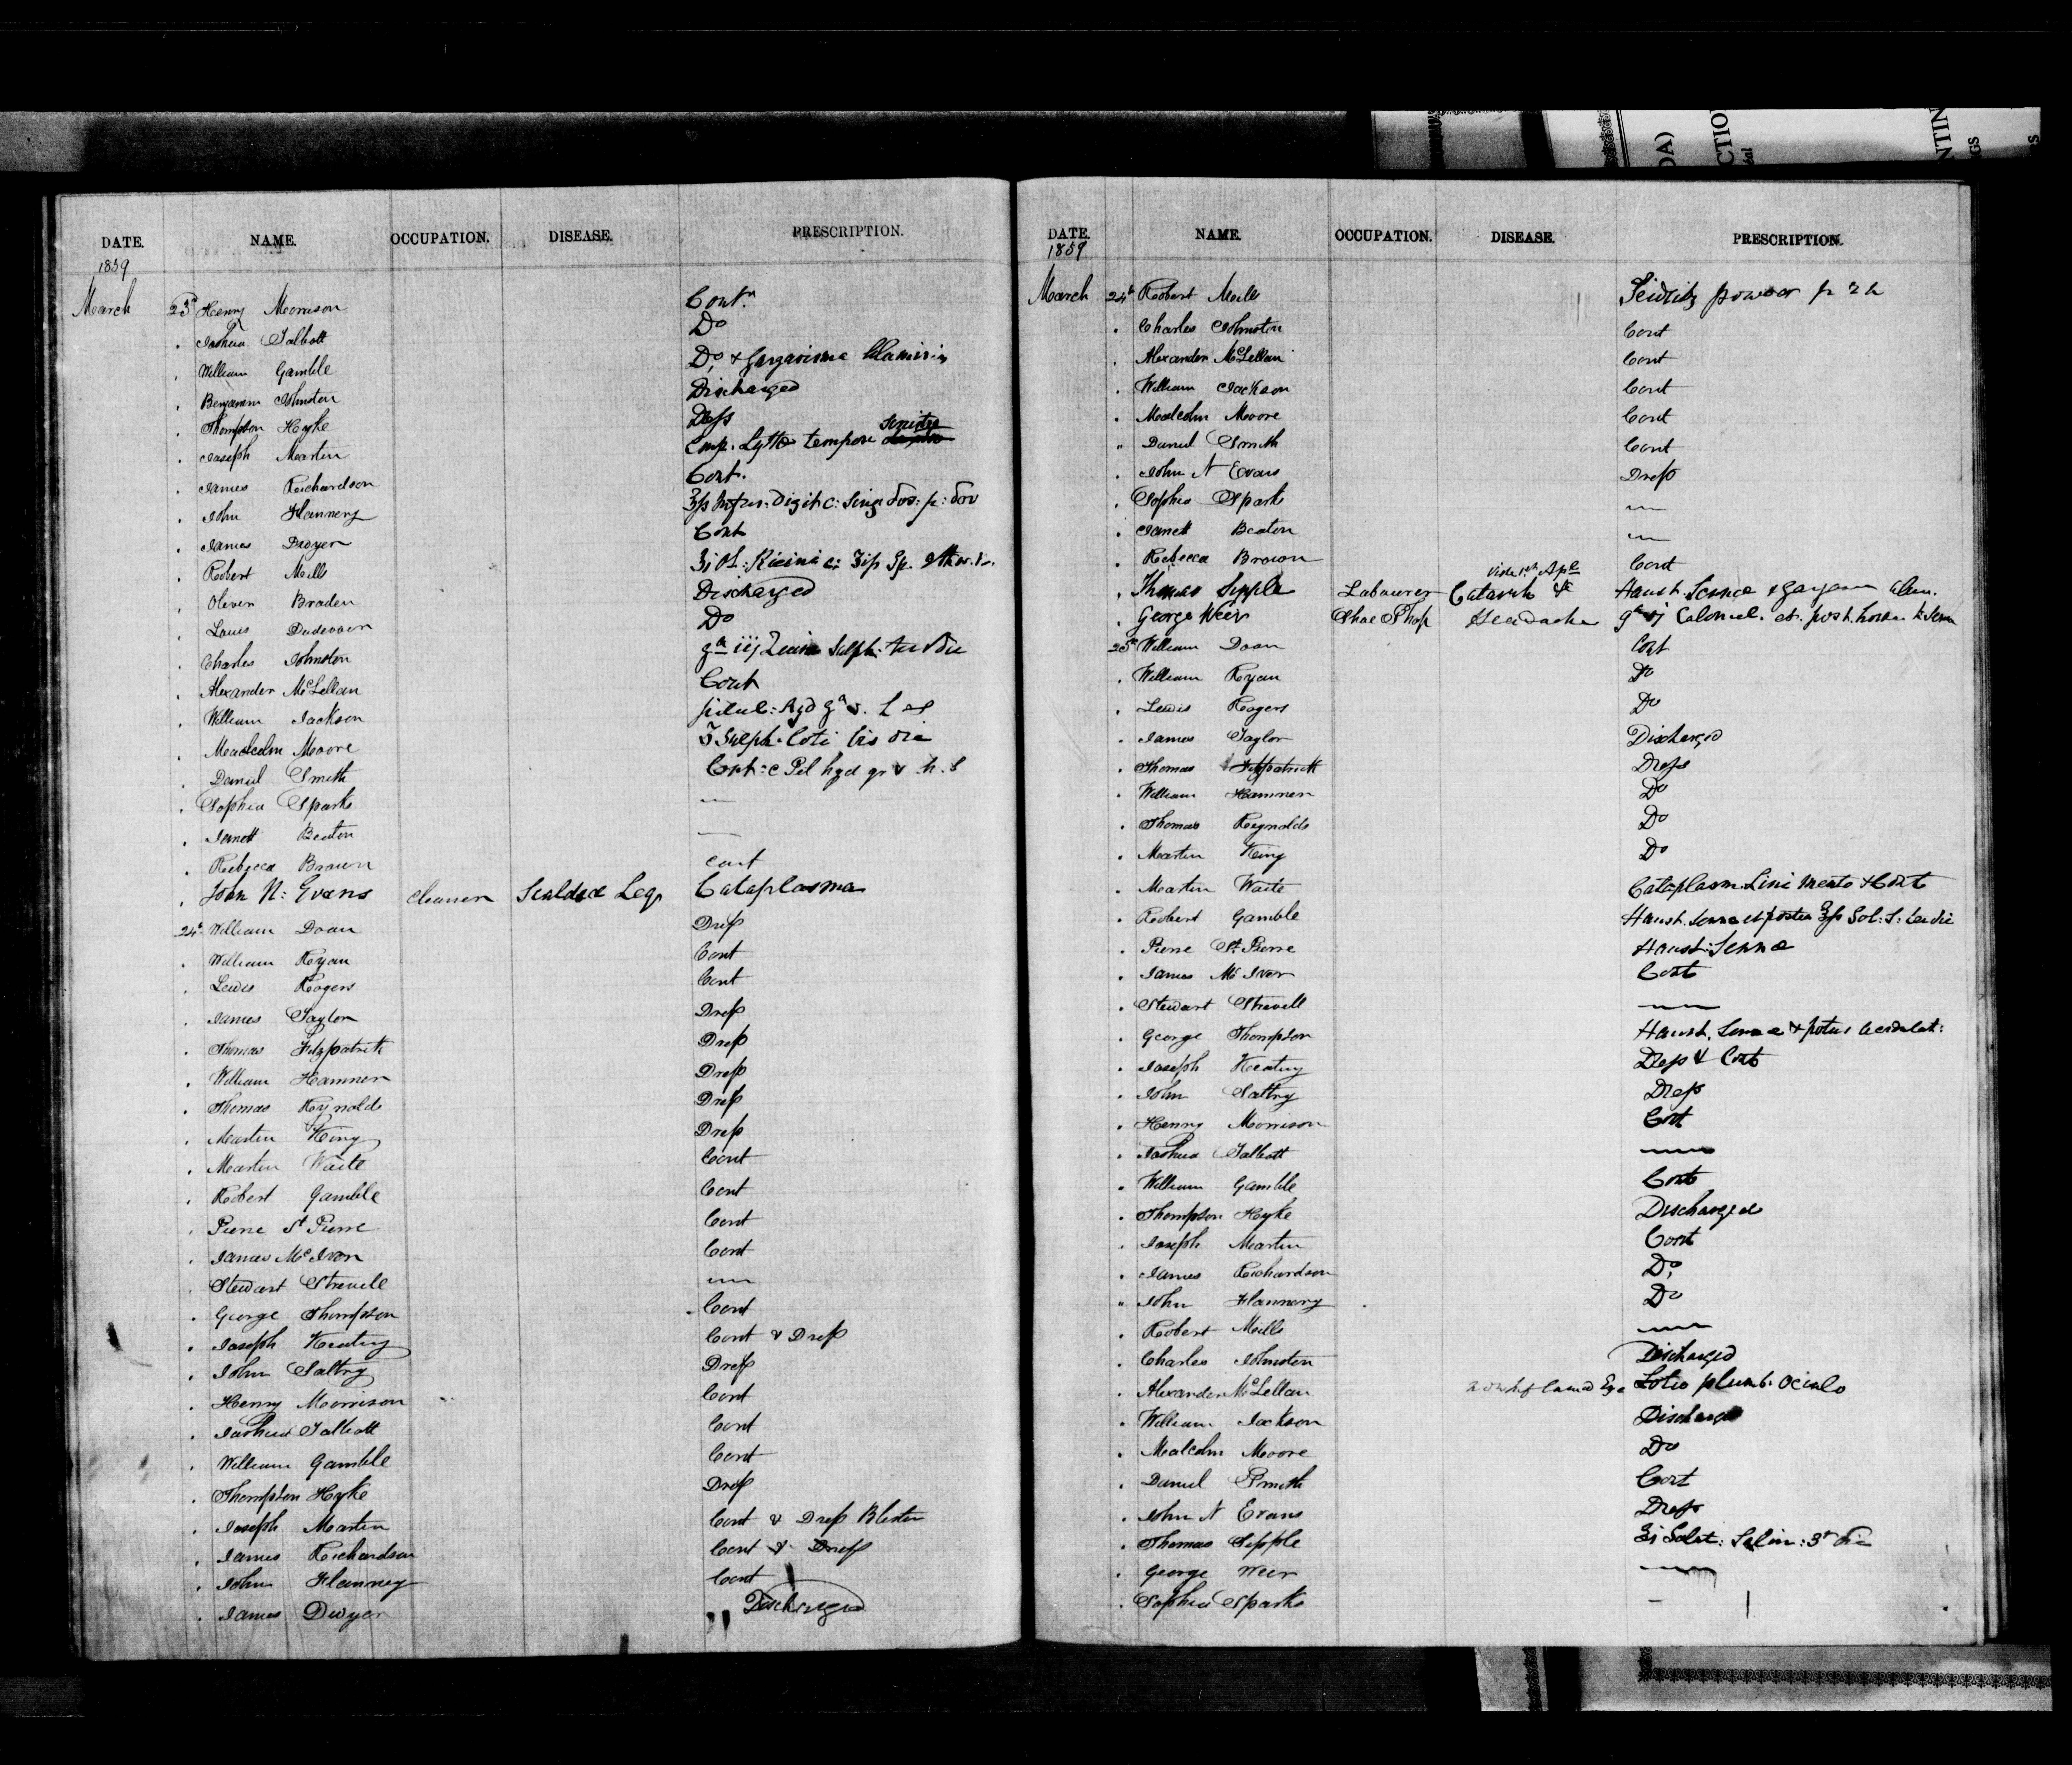 DA)
CTIO
éal
NTIN
GS
S
DATE. NAME. OCCUPATION. DISEASE. PRESCRIPTION.
1859
March 23d Henry Morrison Contn
" Joshua Talbott Do
" William Gamble Do, + Gargarisma
" Benjamin Johnston Discharged
" Thompson Hyke Dress
" Joseph Martin Emp. Lyttae tempore sinistra
" James Richardson Cont.
" John Flannery
" James Dwyer Cont
" Robert Mills Ol: Ricini c:
" Oliver Braden Discharged
" Louis Do
" Charles Johnston gr iij Sulph. ter die
" Alexander McLellan Cont
" William Jackson
" Malcolm Moore Sulph. bis die
" Daniel Smith Cont: c Pil hyd gr v h. s
" Sophia Sparks —
" Janett Beaton —
" Rebecca Brown cont
" John N: Evans Cleaner Scalded Leg Cataplasma
24th William Doan Dress
" William Ryan Cont
" Lewis Rogers Cont
" James Taylor Dress
" Thomas Fitzpatrick Dress
" William Hamner Dress
" Thomas Reynolds Dress
" Martin King Dress
" Martin Waite Cont
" Robert Gamble Cont
" Pierre St Pierre Cont
" James McIvor Cont
" Stewart Strevell —
" George Thompson Cont
" Joseph Keating Cont & Dress
" John Saltry Dress
" Henry Morrison Cont
" Joshua Talbott Cont
" William Gamble Cont
" Thompson Hyke Dress
" Joseph Martin Cont & Dress Blister
" James Richardson Cont & Dress
" John Flannery Cont
" James Dwyer Discharged
DATE. NAME. OCCUPATION. DISEASE. PRESCRIPTION.
1859
March 24th Robert Mills Seidlitz powder
" Charles Johnston Cont
" Alexander McLellan Cont
" William Jackson Cont
" Malcolm Moore Cont
" Daniel Smith Cont
" John N Evans Dress
" Sophia Sparks —
" Janett Beaton —
" Rebecca Brown Cont
" Thomas Sipple Labourer Catarrh Haust. Sennae &
" George Weir Shoe Shop Headache Calomel. et post
25th William Doan Cont
" William Ryan Do
" Lewis Rogers Do
" James Taylor Discharged
" Thomas Fitzpatrick Dress
" William Hamner Do
" Thomas Reynolds Do
" Martin King Do
" Martin Waite Cataplasm. Lini & Cont
" Robert Gamble Haust. Sennae et postea
" Pierre St Pierre Haust: Sennae
" James McIvor Cont
" Stewart Strevell —
" George Thompson Haust. Sennae & potus
" Joseph Keating Dress & Cont
" John Saltry Dress
" Henry Morrison Cont
" Joshua Talbott —
" William Gamble Cont
" Thompson Hyke Discharged
" Joseph Martin Cont
" James Richardson Do,
" John Flannery Do
" Robert Mills —
" Charles Johnston Discharged
" Alexander McLellan Eye Lotio plumb. Oculo
" William Jackson Discharged
" Malcolm Moore Do
" Daniel Smith Cont
" John N Evans Dress
" Thomas Sipple
" George Weir —
" Sophia Sparks —